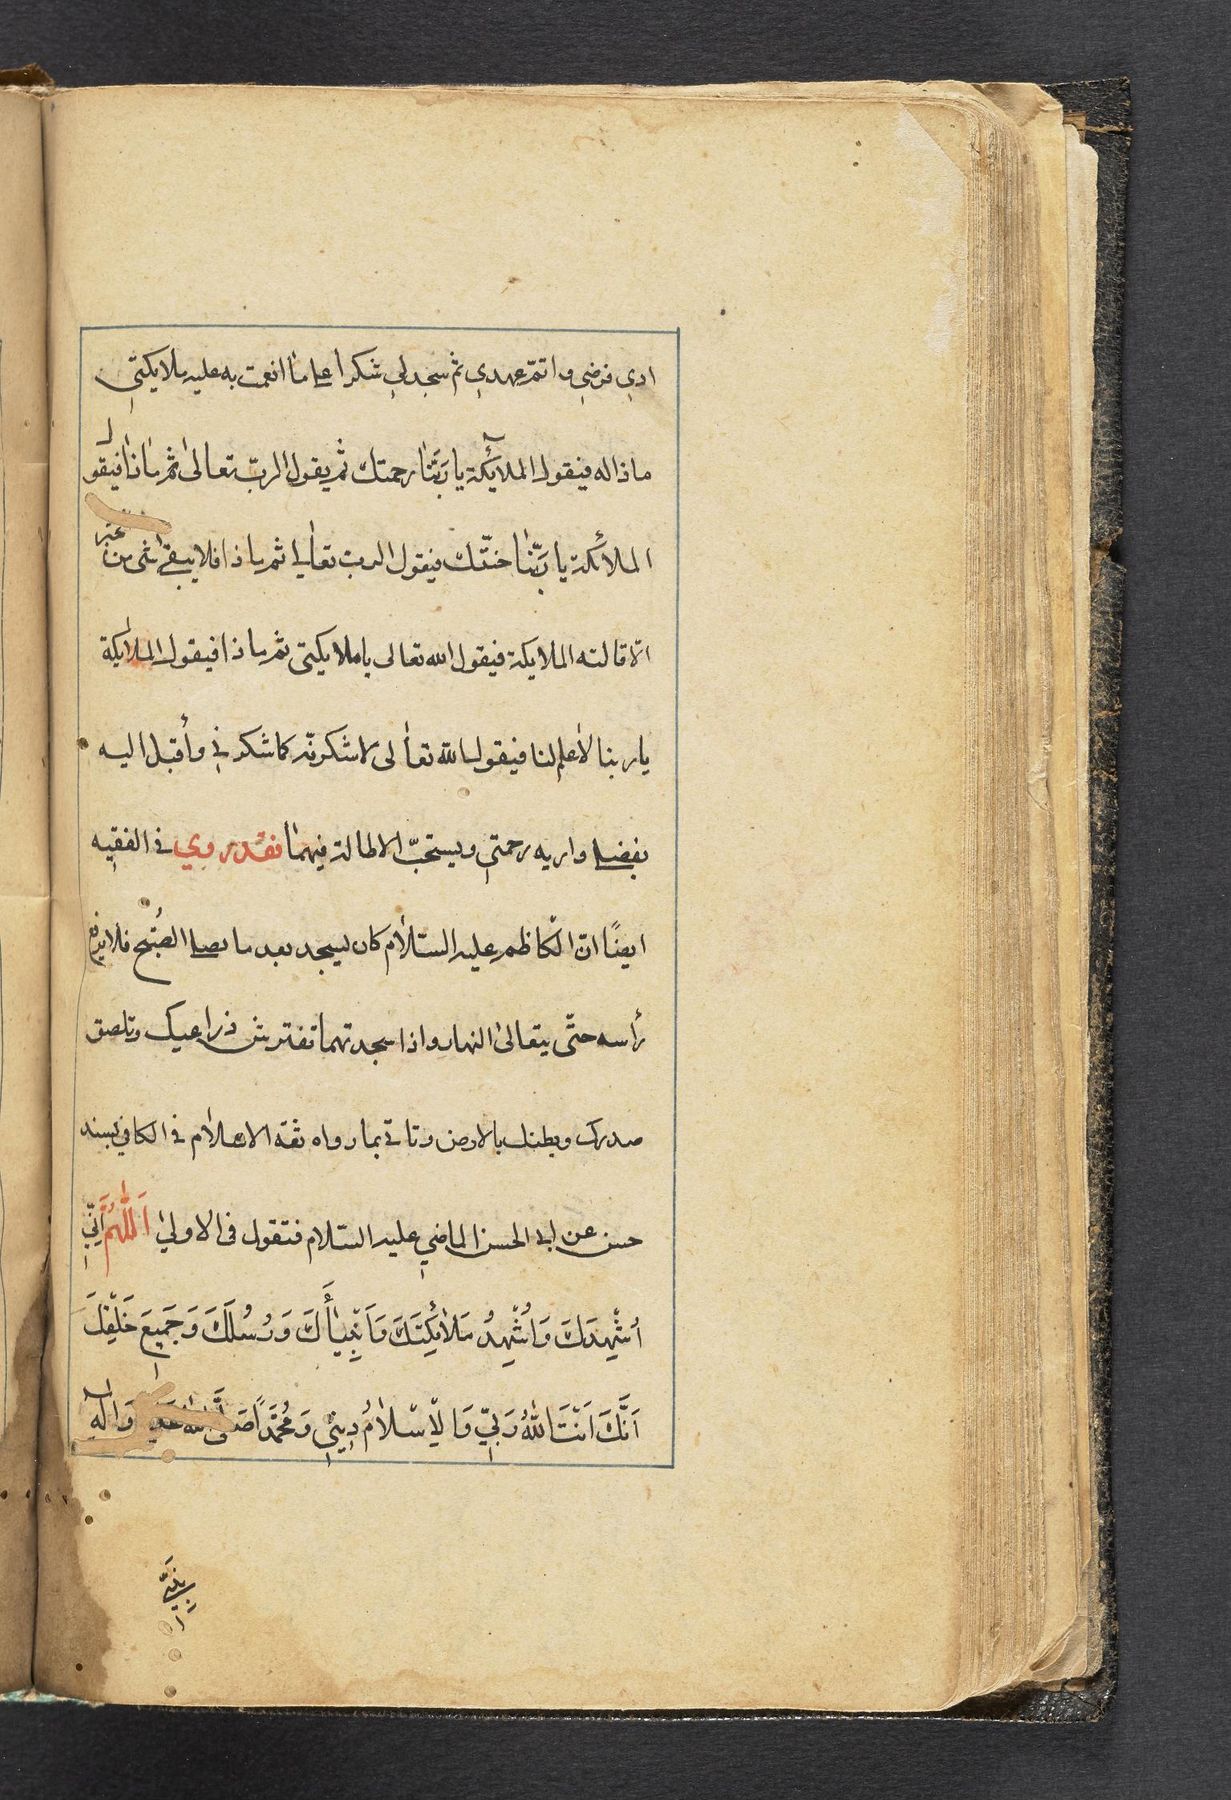 ادى فرضي واتمّ عهدي ثم سجد لي شكرا على ما انعمت به عليه ملايكتي
ماذا له فيقول الملائكة يا ربّنا رحمتك ثم يقول الرب تعالى ثم ماذا فيقول
الملائكة يا ربّنا جنّتك فيقول الرب تعالى ثم ماذا فلا يبقى شئ من
الا قالته الملايكة فيقول الله تعالى يا ملايكتي ثم ماذا فيقول الملايكة
يا ربنا لا علم لنا فيقول الله تعالى لاشكرنّه كما شكرني وأقبل اليه
بفضلى واريه رحمتي ويستحبّ الاطالة فيهما فقد روي في الفقيه
ايضًا انّ الكاظم عليه السّلام كان يسجد بعد ما يصلى الصُبْح فلا يرفع
رأسه حتّى يتعالى النهار واذا سجدتهما تفترش ذراعيك وتلصق
صدرك وبطنك بالارض وتاتي بما رواه ثقة الاعلام في الكافي بسند
حسن عن ابى الحسن الماضي عليه السّلام فتقول في الاولى اَللّٰهُمَّ اِنّي
اُشْهِدُكَ وَاُشْهِدُ مَلاٰئِكَتَكَ وَاَنْبِيٰاءَكَ وَرُسُلَكَ وَجَمِيعَ خَلْقِكَ
اَنَّكَ اَنْتَ اللّٰهُ رَبّي وَالاِسْلاٰمُ دِيني وَمُحَمَّدًا صَلَّى اللّٰهُ عَلَيْهِ وَاٰلِهِ